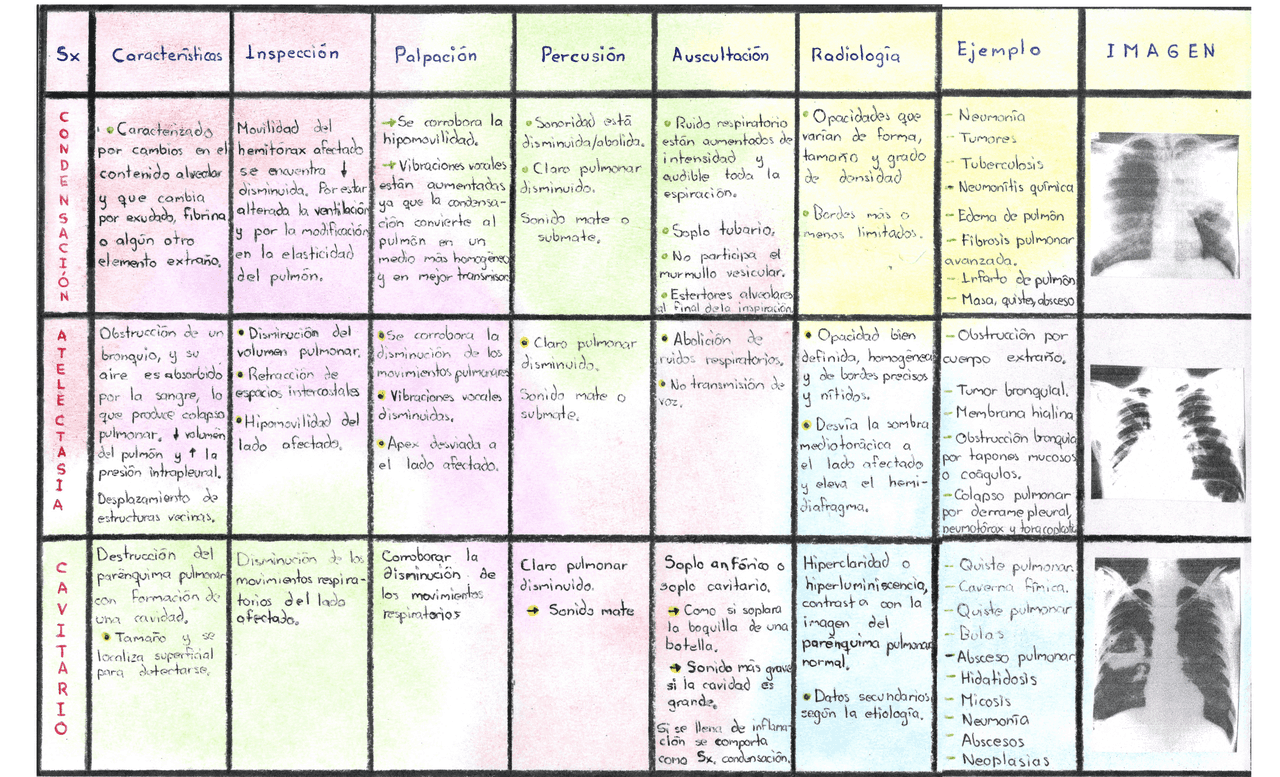 Sx
Características
Inspección
Palpación
Percusión
Auscultación
Radiología
Ejemplo
IMAGEN
CONDENSACIÓN
• Caracterizado
por cambios en el
contenido alveolar
y que cambia
por exudado, fibrina
o algún otro
elemento extraño.
Movilidad del
hemitórax afectado
se encuentra ↓
disminuida. Por estar
alterada la ventilación
y por la modificación
en la elasticidad
del pulmón.
→ Se corrobora la
hipomovilidad.
→ Vibraciones vocales
están aumentadas
ya que la condensa-
ción convierte al
pulmón en un
medio más homogéneo
y en mejor transmisor
• Sonoridad está
disminuida/abolida.
• Claro pulmonar
disminuido.
Sonido mate o
submate.
• Ruido respiratorio
están aumentados de
intensidad y
audible toda la
espiración.
• Soplo tubario.
• No participa el
murmullo vesicular.
• Estertores alveolares
al final de la inspiración
• Opacidades que
varían de forma,
tamaño y grado
de densidad
• Bordes más o
menos limitados.
- Neumonía
- Tumores
- Tuberculosis
- Neumonitis química
- Edema de pulmón
- Fibrosis pulmonar
avanzada.
- Infarto de pulmón
- Masa, quiste, absceso
ATELECTASIA
Obstrucción de un
bronquio, y su
aire es absorbido
por la sangre, lo
que produce colapso
pulmonar. ↓ volumen
del pulmón y ↑ la
presión intrapleural.
Desplazamiento de
estructuras vecinas.
• Disminución del
volumen pulmonar.
• Retracción de
espacios intercostales
• Hipomovilidad del
lado afectado.
• Se corrobora la
disminución de los
movimientos pulmonares
• Vibraciones vocales
disminuidas.
• Apex desviada a
el lado afectado.
• Claro pulmonar
disminuido.
Sonido mate o
submate.
• Abolición de
ruidos respiratorios.
• No transmisión de
voz.
• Opacidad bien
definida, homogénea
y de bordes precisos
y nítidos.
• Desvía la sombra
mediotorácica a
el lado afectado
y eleva el hemi-
diafragma.
- Obstrucción por
cuerpo extraño.
- Tumor bronquial.
- Membrana hialina
- Obstrucción bronquial
por tapones mucosos
o coágulos.
- Colapso pulmonar
por derrame pleural,
neumotórax y toracoplastia
CAVITARIO
Destrucción del
parénquima pulmonar
con formación de
una cavidad.
• Tamaño y se
localiza superficial
para detectarse.
Disminución de los
movimientos respira-
torios del lado
afectado.
Corroborar la
disminución de
los movimientos
respiratorios
Claro pulmonar
disminuido.
→ Sonido mate
Soplo anfórico o
soplo cavitario.
→ Como si soplara
la boquilla de una
botella.
→ Sonido más grave
si la cavidad es
grande.
Si se llena de inflama-
ción se comporta
como Sx. condensación.
Hiperclaridad o
hiperluminiscencia,
contrasta con la
imagen del
parénquima pulmonar
normal.
• Datos secundarios
según la etiología.
- Quiste pulmonar.
- Caverna fímica.
- Quiste pulmonar
- Bulas
- Absceso pulmonar
- Hidatidosis
- Micosis
- Neumonía
- Abscesos
- Neoplasias